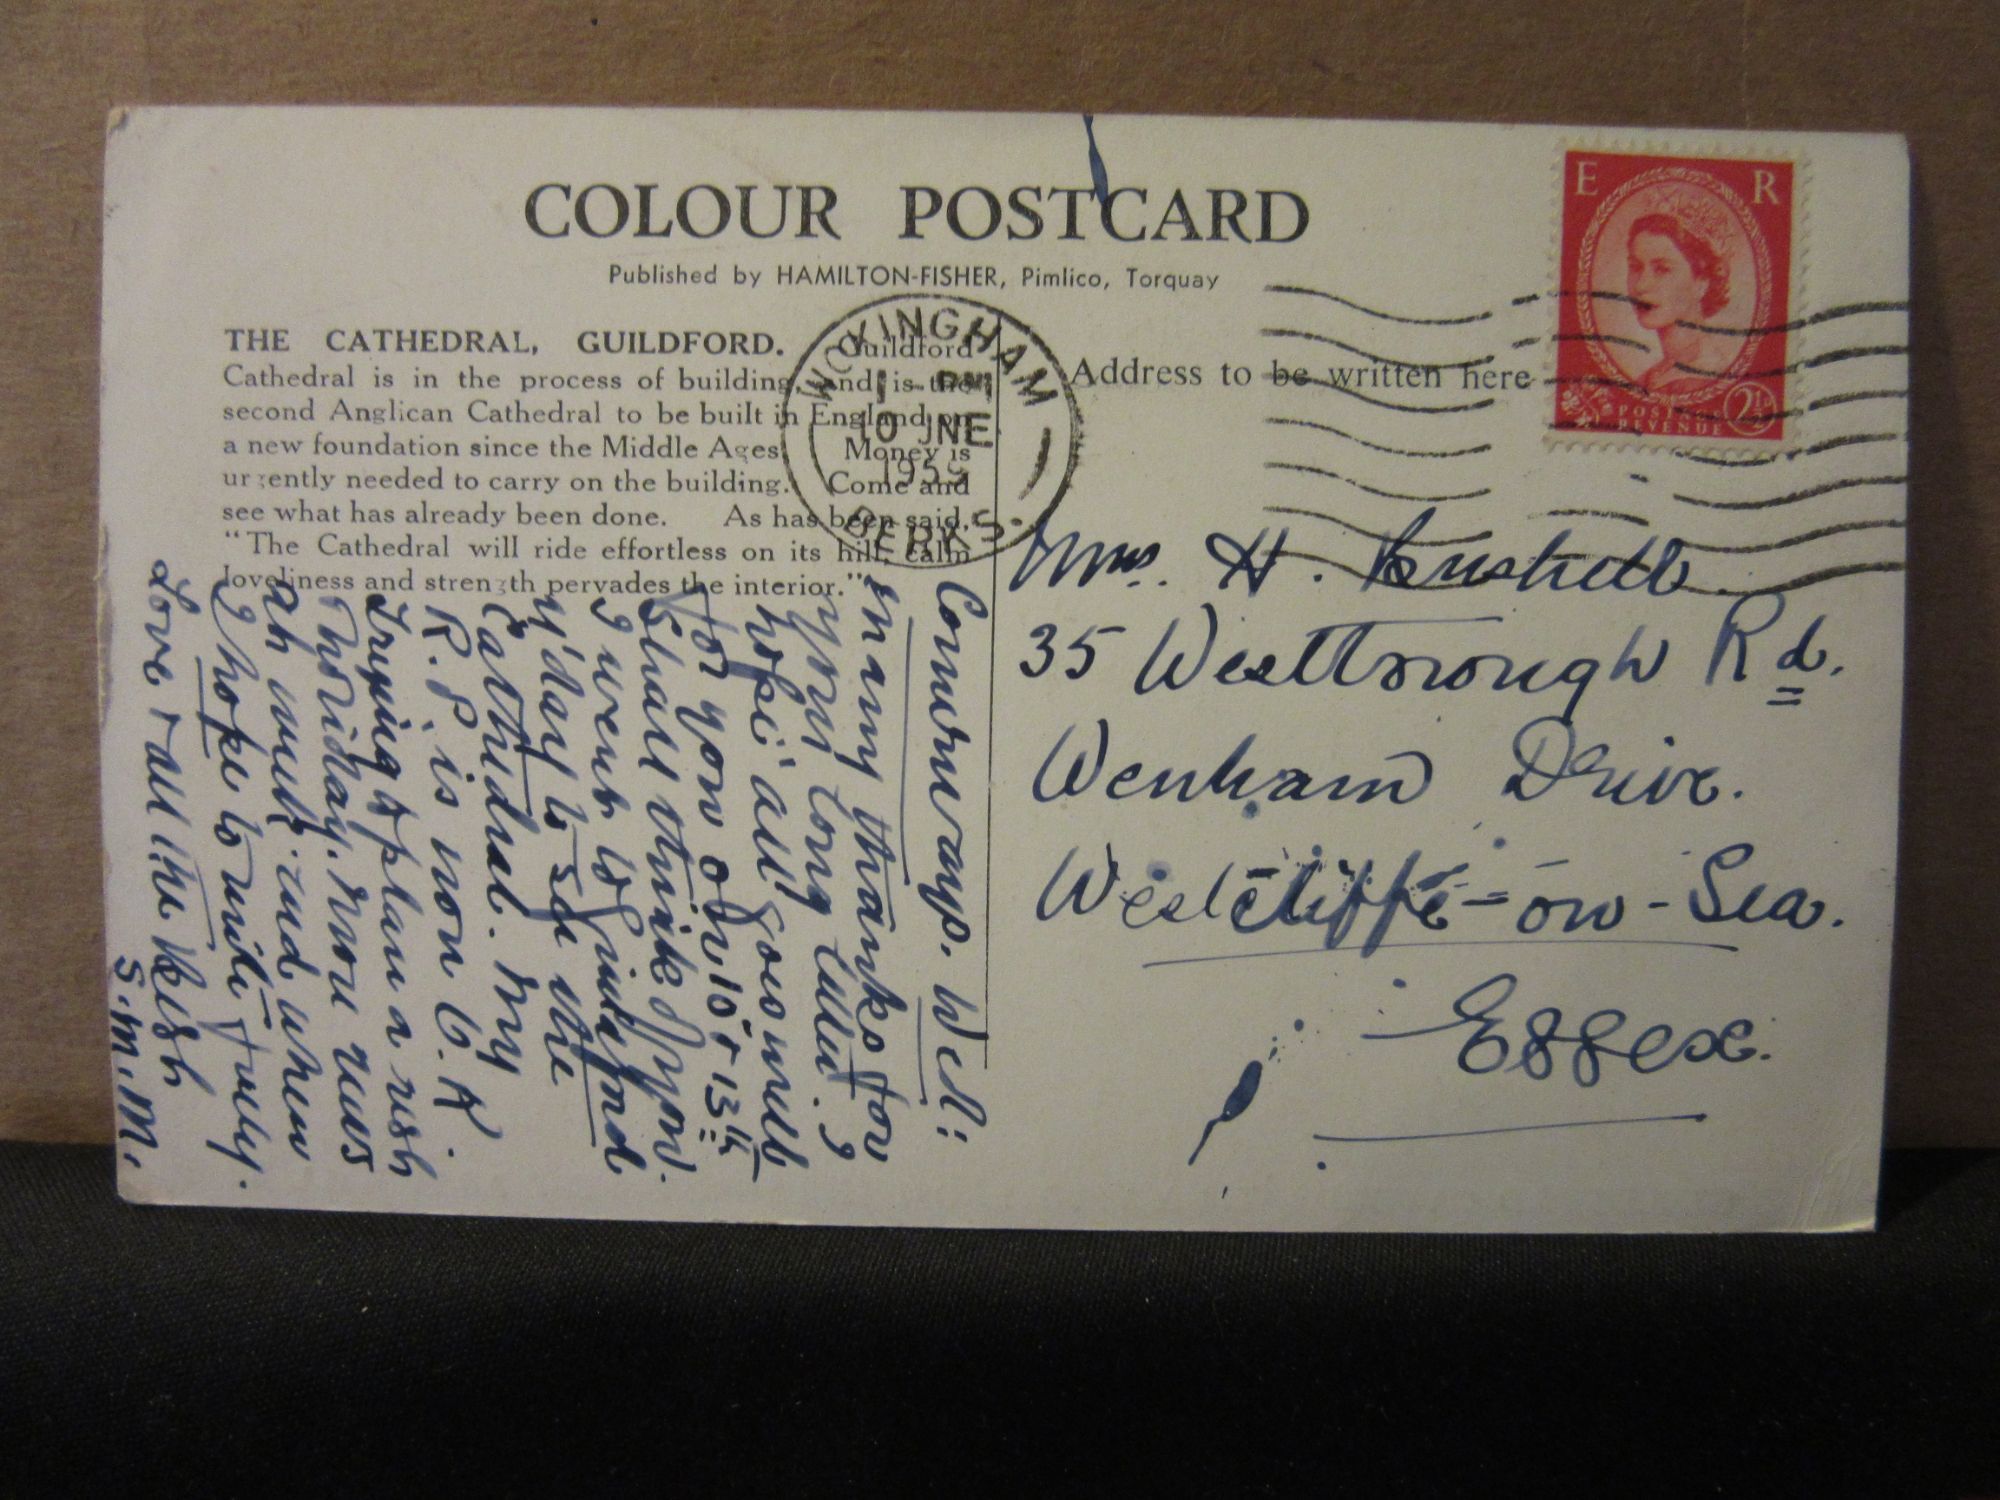 COLOUR POSTCARD
Published by HAMILTON-FISHER, Pimlico, Torquay
THE CATHEDRAL, GUILDFORD. Guildford
Cathedral is in the process of building, and is the
second Anglican Cathedral to be built in England on
a new foundation since the Middle Ages. Money is
urgently needed to carry on the building. Come and
see what has already been done. As has been said,
"The Cathedral will ride effortless on its hill, calm
loveliness and strength pervades the interior."
WOKINGHAM
1 - PM
10 JNE
1959
BERKS.
Address to be written here
E R
POSTAGE
REVENUE
2½d
Mrs. H.
35 Westborough Rd.
Wenham Drive.
Westcliffe-on-Sea.
Essex.
Conways. Wed:
Many thanks for
your long letter. I
hope all goes well
for you on 10 & 13th
Shall think of you.
I went to Guildford
y'day to see the
Cathedral. My
R.P. is now O.K
Trying to plan a
holiday. More news
at week-end when
I hope to write fully.
Love & all the best
S.M.M.